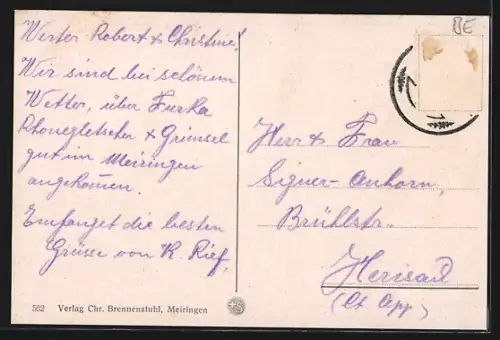 Werter Robert & Christine!
Wir sind bei schönem
Wetter, über Furka
Rhonegletscher & Grimsel
gut im Meiringen
angekommen.
Empfanget die besten
Grüsse von K Rief.
BE
Herr & Frau
Signer-Anhorn,
Brühlstr.
Herisau
(Ct App)
592 Verlag Chr. Brennenstuhl, Meiringen